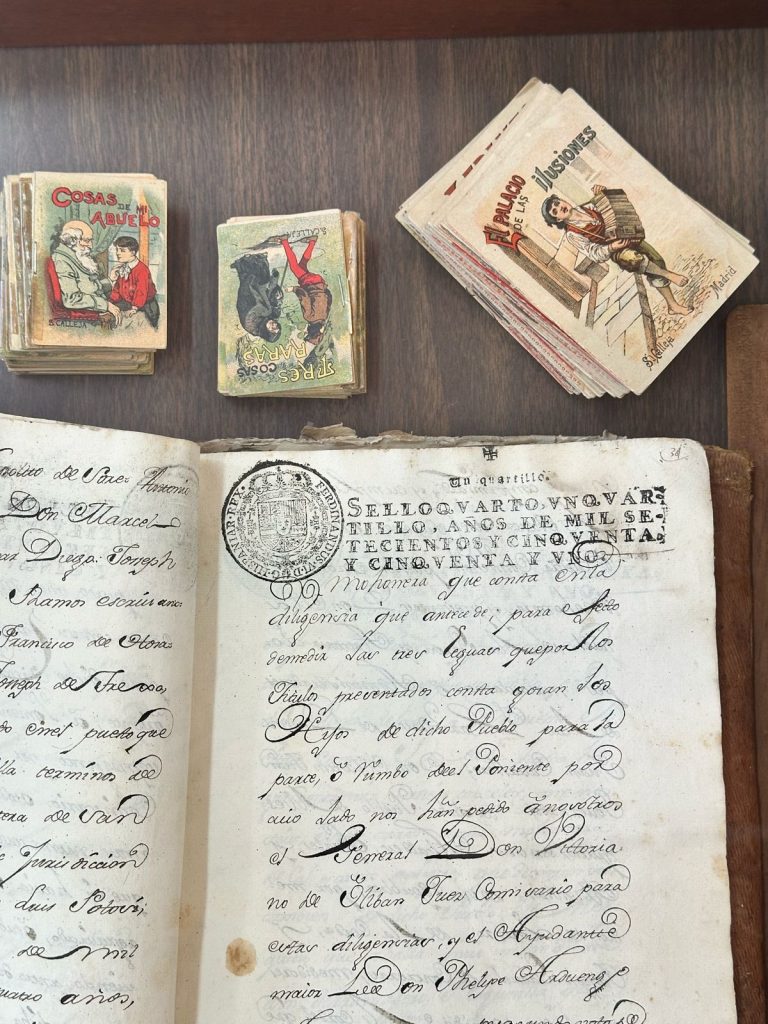 COSAS
DE MI
ABUELO
S. CALLEJA
S. CALLEJA
TRES
COSAS
RARAS
EL PALACIO
DE LAS
ILUSIONES
S. Calleja
Madrid
Don Marcel
Diego Joseph
Ramos escrivano
Francisco de
Joseph de
en el pueblo que
terminos de
de San
Jurisdiccion
Luis Potosi,
de mil
quatro años,
Un quartillo.
SELLO QVARTO, VN QVAR-
TILLO, AÑOS DE MIL SE-
TECIENTOS Y CINQVENTA,
Y CINQVENTA Y VNO.
FERDINANDUS VI D G HISPANIAR REX
Mohonera que consta en la
diligensia que antecede; para efecto
de medir las tres leguas que por los
titulos presentados consta gosan los
Hijos de dicho Pueblo para la
parte, ô rumbo de el Poniente por
cuio lado nos han pedido â nosotros
el General Don Victoria
no de Oliban Juez Comisario para
estas diligencias, y el Ayudante
maior Don Phelipe